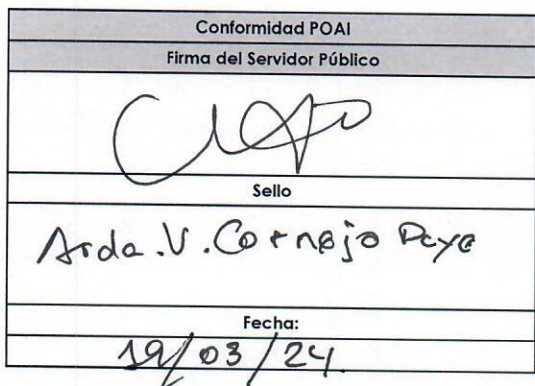 Conformidad POAI
Firma del Servidor Público
Sello
Arda.V. Cornejo Paye
Fecha:
19/03/24.